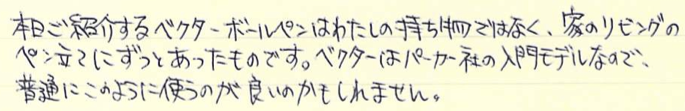 本日ご紹介するベクターボールペンはわたしの持ち物ではなく、家のリビングの
ペン立てにずっとあったものです。ベクターはパーカー社の入門モデルなので、
普通にこのように使うのが良いのかもしれません。